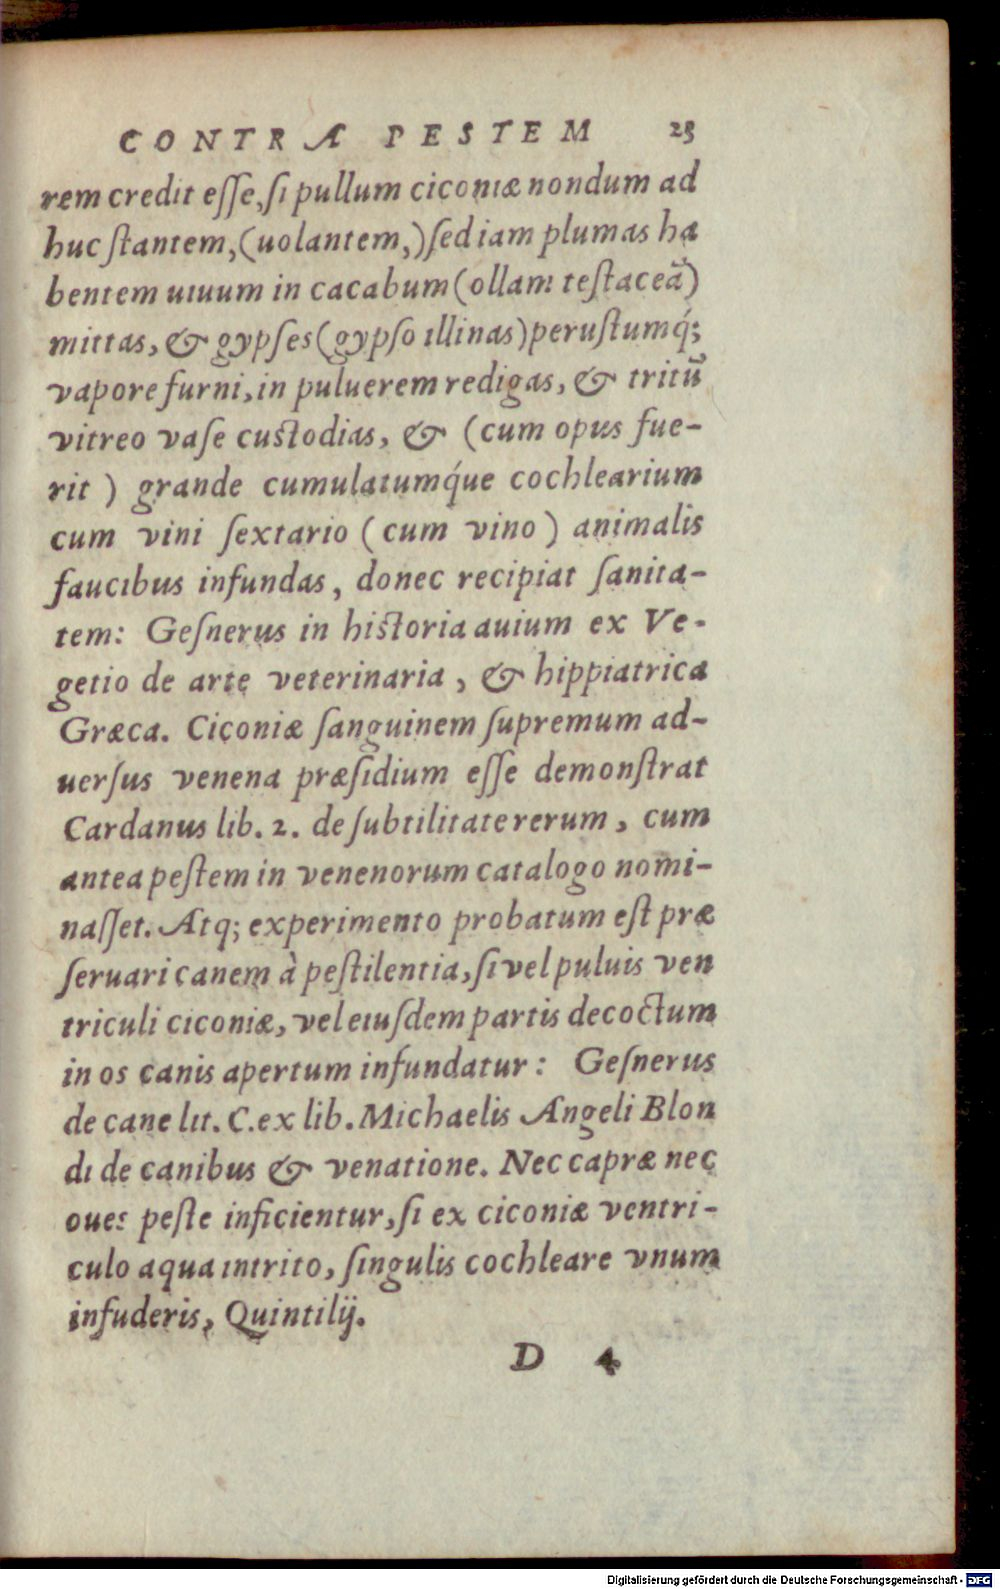 CONTRA PESTEM 25
rem credit eſſe, ſi pullum ciconiæ nondum ad
huc ſtantem, (uolantem,) ſed iam plumas ha
bentem uiuum in cacabum (ollam teſtaceã)
mittas, & gypſes (gypſo illinas) peruſtumq́;
vapore furni, in puluerem redigas, & tritũ
vitreo vaſe cuſtodias, & (cum opus fue-
rit) grande cumulatumq́ue cochlearium
cum vini ſextario (cum vino) animalis
faucibus infundas, donec recipiat ſanita-
tem: Geſnerus in hiſtoria auium ex Ve-
getio de arte veterinaria, & hippiatrica
Græca. Ciconiæ ſanguinem ſupremum ad-
uerſus venena præſidium eſſe demonſtrat
Cardanus lib. 2. de ſubtilitate rerum, cum
antea peſtem in venenorum catalogo nomi-
naſſet. Atq; experimento probatum eſt præ
ſeruari canem à peſtilentia, ſi vel puluis ven
triculi ciconiæ, vel eiuſdem partis decoctum
in os canis apertum infundatur: Geſnerus
de cane lit. C. ex lib. Michaelis Angeli Blon
di de canibus & venatione. Nec capræ nec
oues peſte inficientur, ſi ex ciconiæ ventri-
culo aqua intrito, ſingulis cochleare vnum
infuderis, Quintilij.
D 4
Digitalisierung gefördert durch die Deutsche Forschungsgemeinschaft - DFG